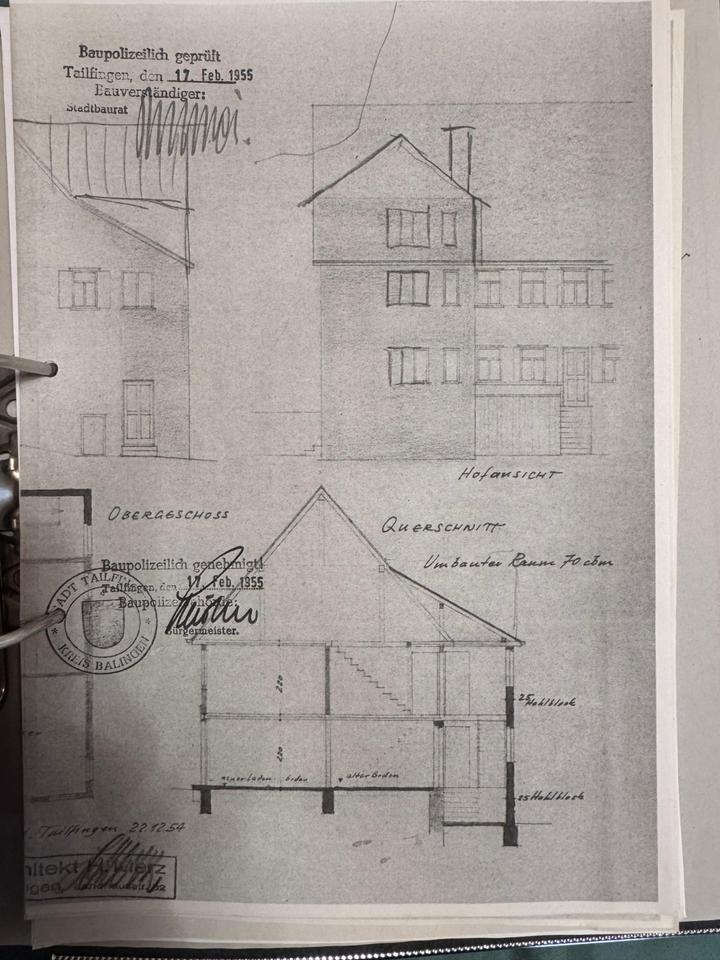 Baupolizeilich geprüft
Tailfingen, den 17. Feb. 1955
Bauverständiger:
Stadtbaurat
HOFANSICHT
OBERGESCHOSS
QUERSCHNITT
Umbauter Raum 70 cbm
Baupolizeilich genehmigt!
Tailfingen, den 17. Feb. 1955
Baupolizeibehörde:
Bürgermeister.
STADT TAILFINGEN
* KREIS BALINGEN *
220
25 Hohlblock
220
boden
alter Boden
25 Hohlblock
Tailfingen 22.12.54